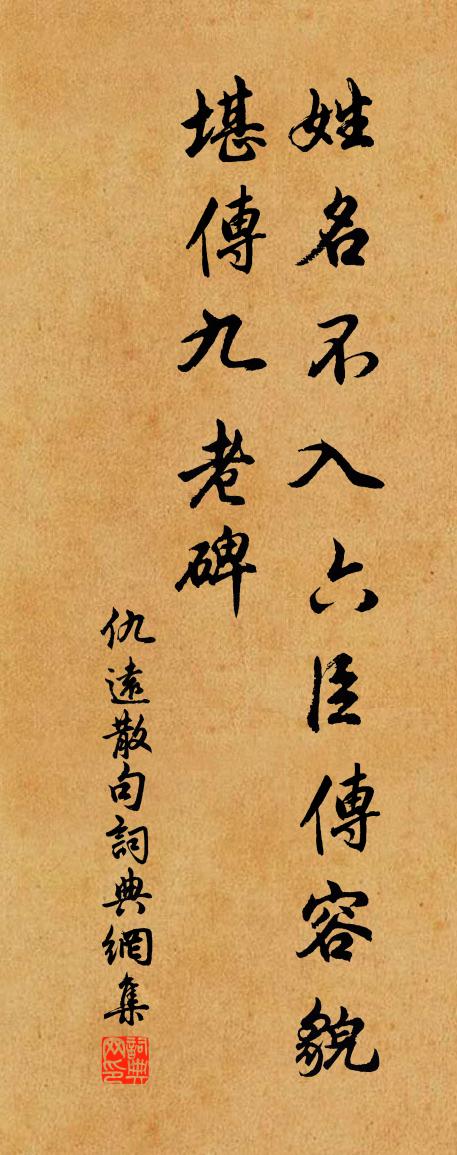 姓名不入六臣傳容貌
堪傳九老碑
仇遠散句詞典網集
詞典網印